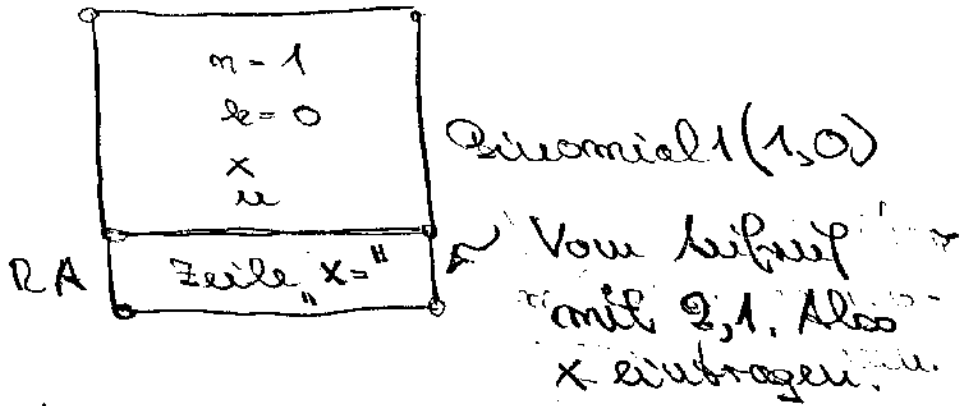 n = 1
k = 0
x
u
Binomial1(1,0)
RA Zeile „x="
Vom Aufruf
mit 2,1. Also
x eintragen.